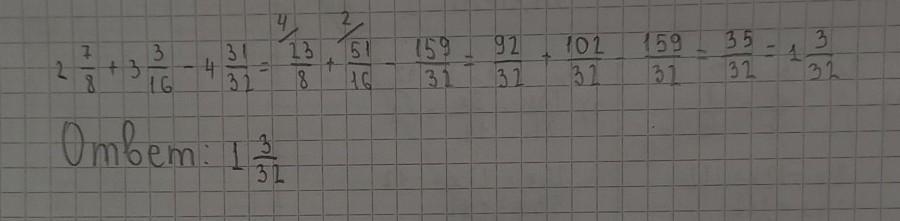 2 7/8 + 3 3/16 - 4 31/32 = 4/ 23/8 + 2/ 51/16 - 159/32 = 92/32 + 102/32 - 159/32 = 35/32 = 1 3/32
Ответ: 1 3/32